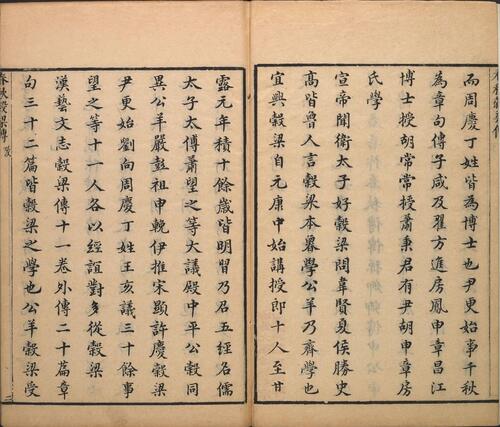 而周慶丁姓皆為博士也尹更始事千秋
為章句傳子咸及翟方進房鳳申章昌江
博士授胡常常授蕭秉君有尹胡申章房
氏學
宣帝聞衛太子好穀梁問韋賢夏侯勝史
高皆魯人言穀梁本魯學公羊乃齊學也
宜興穀梁自元康中始講授郎十人至甘
露元年積十餘歲皆明習乃召五經名儒
太子太傅蕭望之等大議殿中平公穀同
異公羊嚴彭祖申輓伊推宋顯許慶穀梁
尹更始劉向周慶丁姓王亥議三十餘事
望之等十一人各以經誼對多從穀梁
漢藝文志穀梁傳十一卷外傳二十篇章
句三十二篇皆穀梁之學也公羊穀梁受
春秋穀梁傳